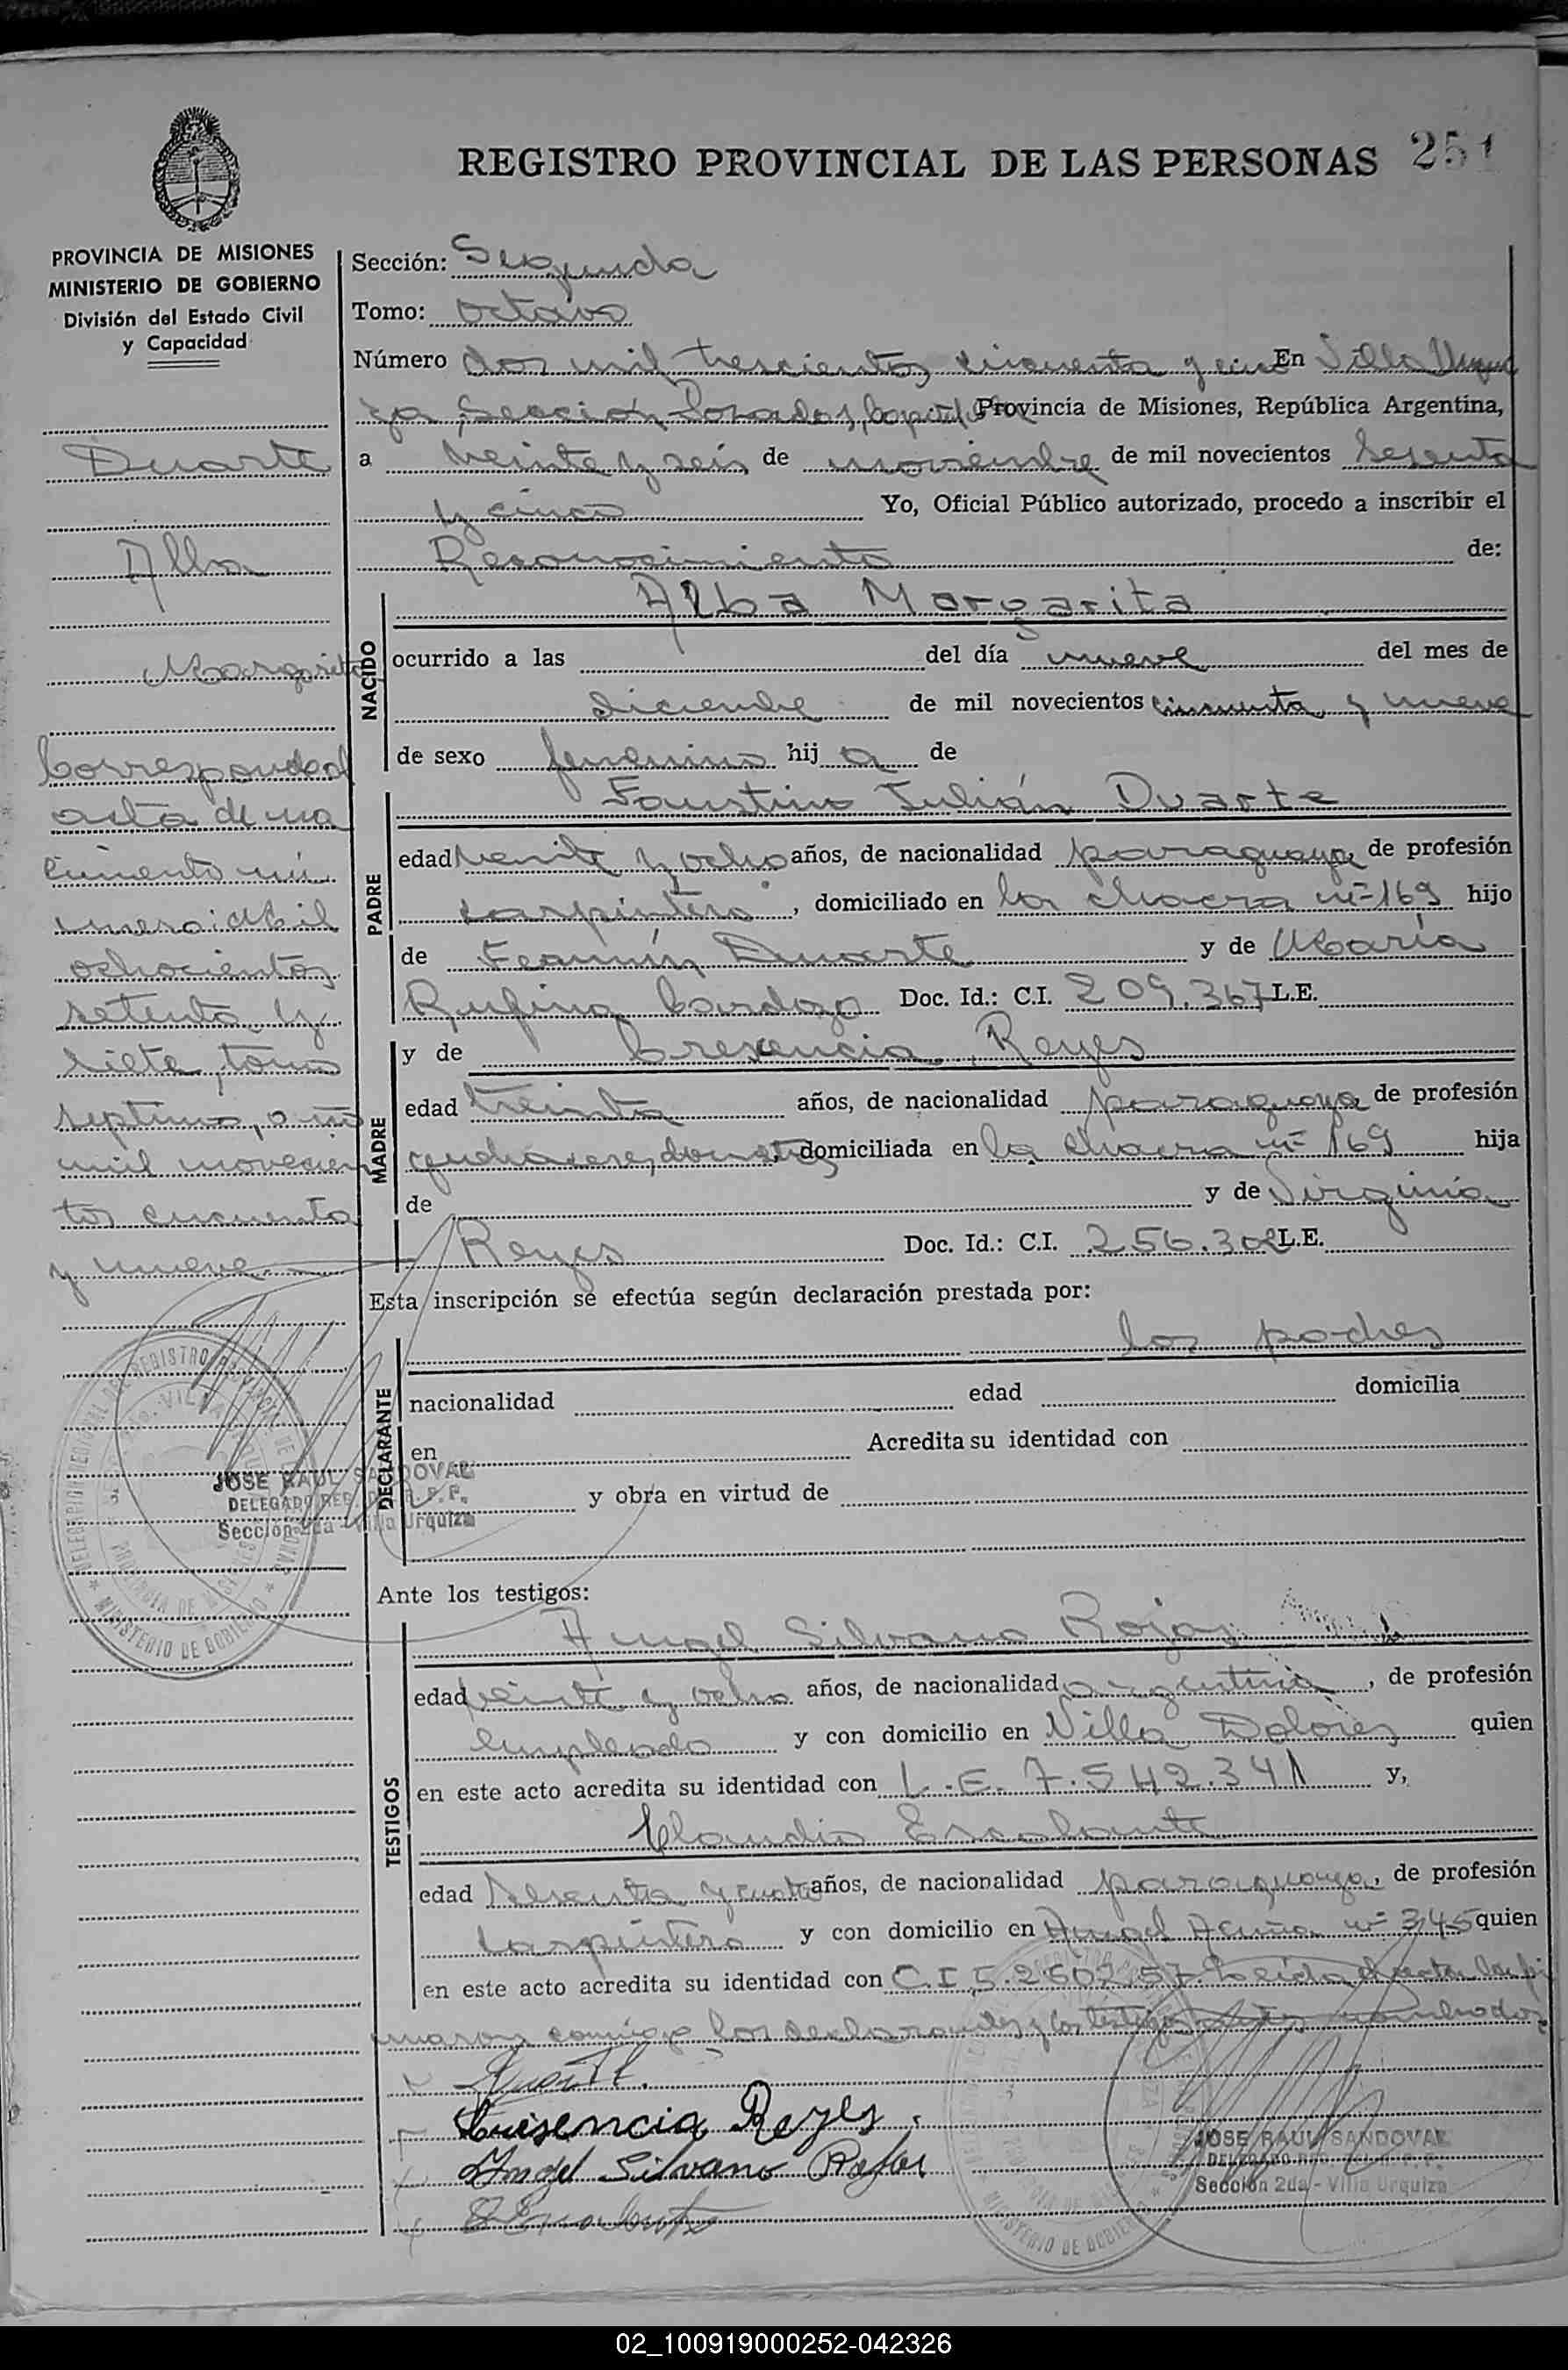 REGISTRO PROVINCIAL DE LAS PERSONAS 251
PROVINCIA DE MISIONES
MINISTERIO DE GOBIERNO
División del Estado Civil
y Capacidad
Duarte
Alba
Margarita
Corresponde al
acta de na
cimiento nú
mero: Mil
ochocientos
setenta y
siete, tomo
septimo, año
mil novecien
tos cincuenta
y nueve.
JOSE RAUL SANDOVAL
Sección 2da - Villa Urquiza
Sección: Segunda
Tomo: Octavo
Número dos mil trescientos cincuenta y cinco En Villa Urqui
za, Sección Posadas, Capital Provincia de Misiones, República Argentina,
a veinte y seis de noviembre de mil novecientos sesenta
y cinco Yo, Oficial Público autorizado, procedo a inscribir el
Reconocimiento de:
NACIDO
Alba Margarita
ocurrido a las del día nueve del mes de
diciembre de mil novecientos cincuenta y nueve
de sexo femenino hija de
PADRE
Faustino Julián Duarte
edad veinte y ocho años, de nacionalidad paraguaya de profesión
carpintero, domiciliado en la chacra nº 169 hijo
de Fermín Duarte y de María
Rufina Cardozo Doc. Id.: C.I. 209.367 L.E.
MADRE
y de Cresencia Reyes
edad treinta años, de nacionalidad paraguaya de profesión
quehaceres domésticos, domiciliada en la chacra nº 169 hija
de y de Virginia
Reyes Doc. Id.: C.I. 256.302 L.E.
Esta inscripción se efectúa según declaración prestada por:
DECLARANTE
los padres
nacionalidad edad domicilia
en Acredita su identidad con
y obra en virtud de
Ante los testigos:
TESTIGOS
Angel Silvano Rojas
edad veinte y ocho años, de nacionalidad argentina, de profesión
empleado y con domicilio en Villa Dolores quien
en este acto acredita su identidad con L.E. 7.542.341 y,
Claudio Escalante
edad sesenta y cuatro años, de nacionalidad paraguaya, de profesión
carpintero y con domicilio en Angel Acuña nº 345 quien
en este acto acredita su identidad con C.I 5.260757. Leída el acta la fir
maron conmigo los declarantes y los testigos nombrados
Duarte.
Crisencia Reyes.
Angel Silvano Rojas
C Escalante
JOSE RAUL SANDOVAL
Sección 2da - Villa Urquiza
02_100919000252-042326